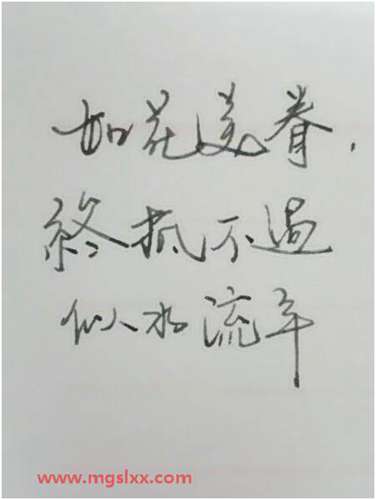 如花美眷，
終抵不过
似水流年
www.mgslxx.com